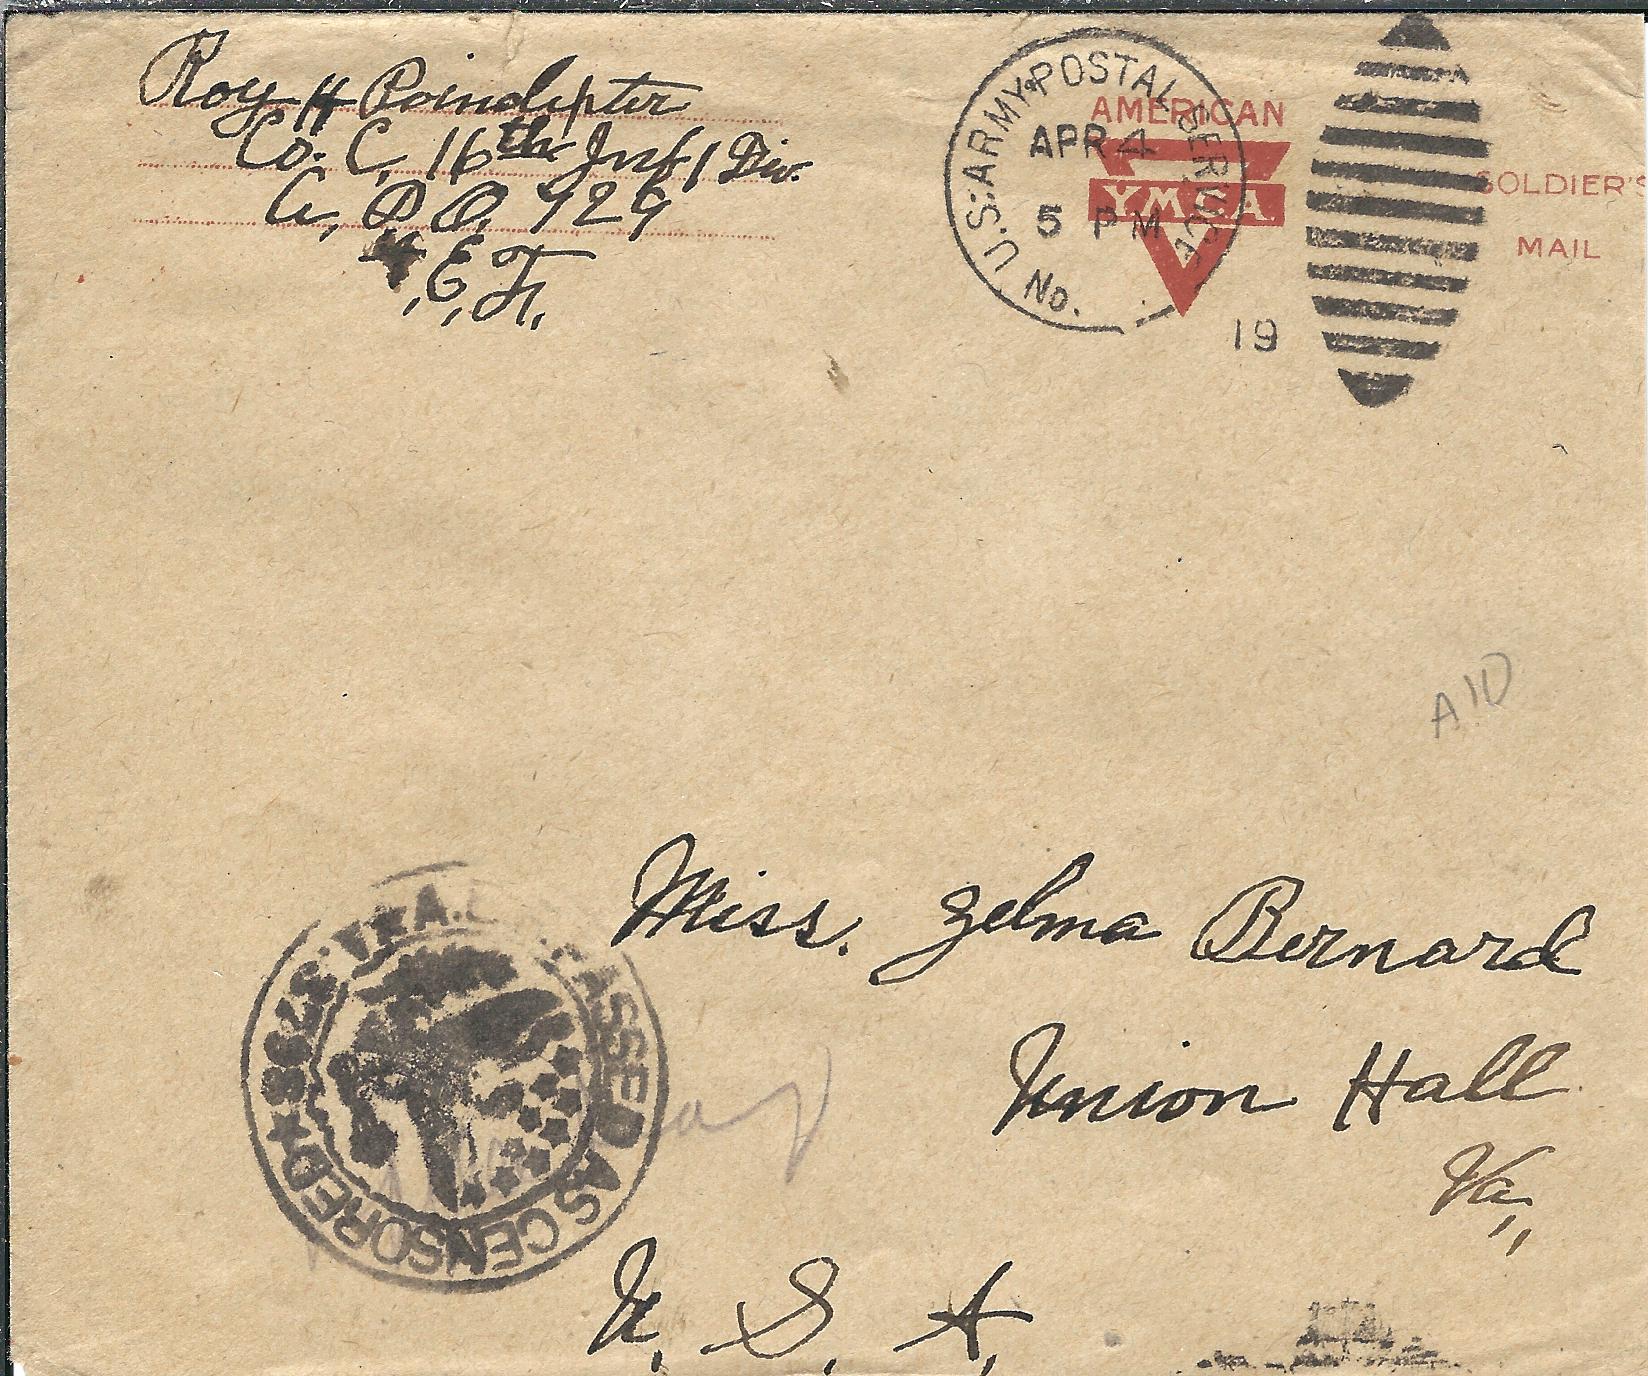 Roy H Poindexter
Co. C, 16th Inf 1 Div.
A, P. O. 729
A, E, F,
U.S. ARMY POSTAL SERVICE
APR 4
5 PM
No.
19
AMERICAN
YMCA
SOLDIER'S
MAIL
A10
Miss. Zelma Bernard
Union Hall
Va,,
U. S. A,
PASSED AS CENSORED